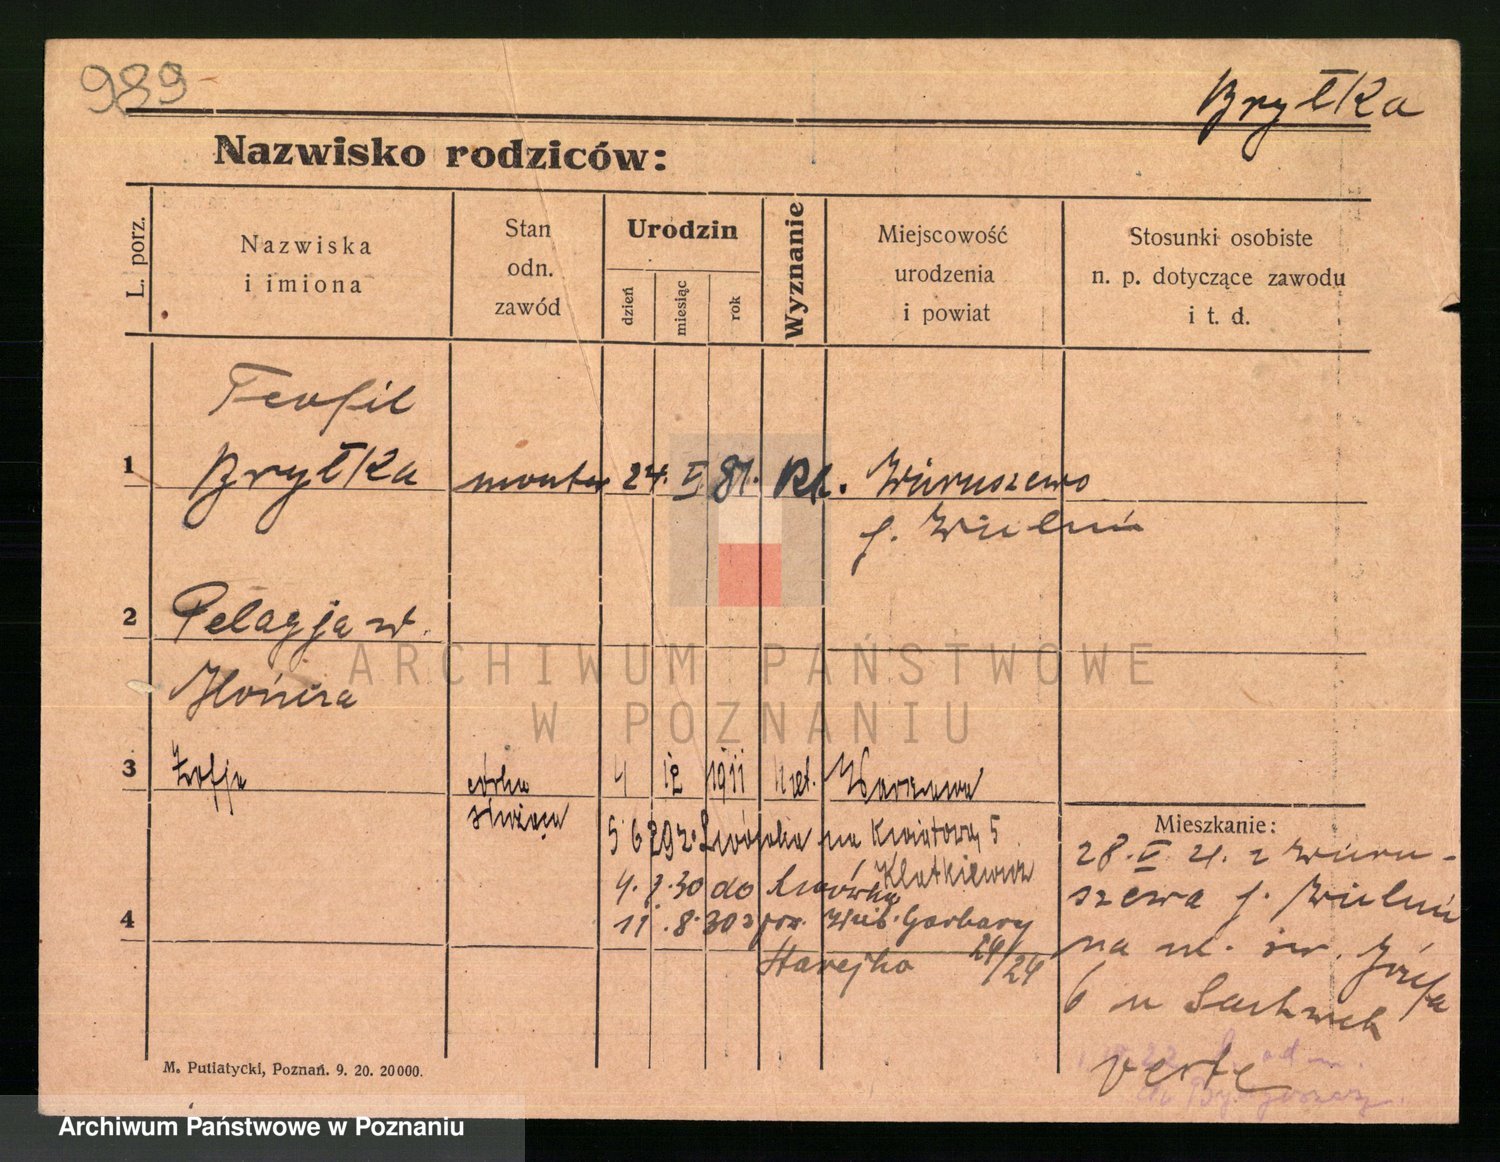 989
Bryłka
Nazwisko rodziców:
L. porz.
Nazwiska
i imiona
Stan
odn.
zawód
Urodzin
dzień
miesiąc
rok
Wyznanie
Miejscowość
urodzenia
i powiat
Stosunki osobiste
n. p. dotyczące zawodu
i t. d.
Teofil
1 Bryłka monter 24. II 81. Rk. Wiruszewo
p. Wieluń
2 Pelagja w.
3 Zofja córka 4 12 1911 kat. Warszawa
służąca
5 6 29 z. Lwówka na Kwiatową 5
4. 7. 30 do Lwówka
11. 8. 30 z pow. Garbary
24/24
4
Mieszkanie:
28. II. 21. z Wiru-
szewa p. Wieluń
na ul. św. Józefa
6 u
verte
M. Putiatycki, Poznań. 9. 20. 20000.
ARCHIWUM PAŃSTWOWE
W POZNANIU
Archiwum Państwowe w Poznaniu